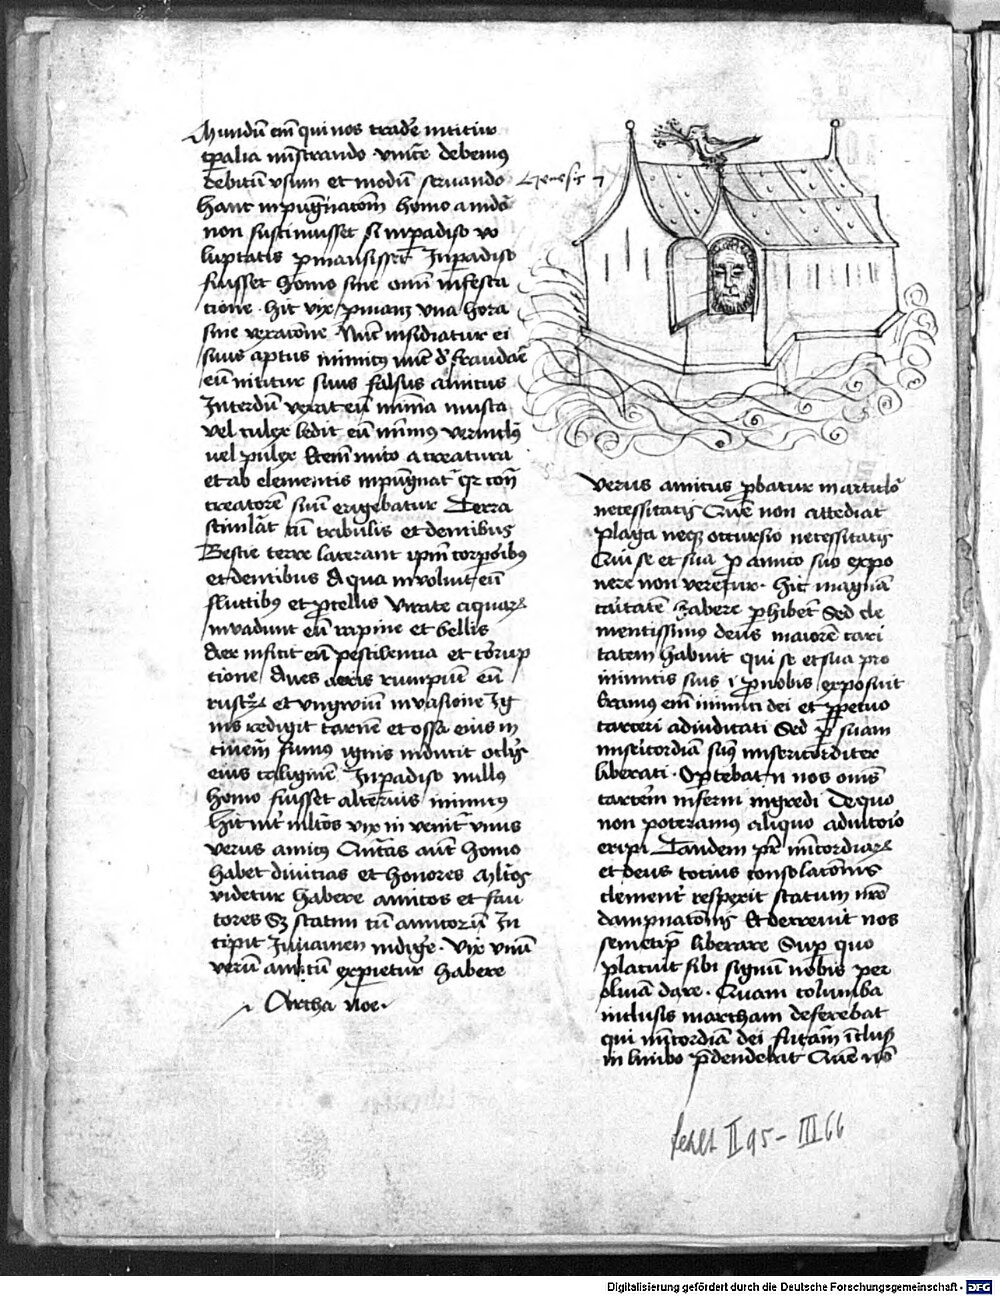 Mundū em̄ qui nos trade nititur
tp̄alia mīstrando vince debemus
debitū usum et modū servando
hanc inpugnatōm homo a mdō
non sustinuisset si in padiso vo
luptatis pmansisset In padiso
fuisset homo sine omī infesta
tione . hic vix pmanz una hora
sine vexatione Nūc insidiatur ei
suus aptus inimicus nūc defraudare
eū nititur suus falsus amicus
Interdū vexat eū minima musca
vel culex ledit eū minimus vermiculus
vel pulex Etem mito a creatura
et ab elementis inpugnat qr con
creatorē suū erigebatur Terra
stimulat eū tribulis et dentibus
Bestie terre lacerant ipm corporibus
et dentibus Aqua involuit eū
fluctibus et pcellis Pirate aquarum
invadunt eū rapine et bellis
Aer inficit eū pestilentia et corrup
tione Aves aeris rumpunt eū
rostrorum et ungwiū invasione Ig
nis redigit carnē et ossa eius in
cinerē fumus ignis inducit oculis
eius caliginē In padiso nullus
homo fuisset alterius inimicus
Hic int multos vix invenit unus
verus amicus Quitas aut homo
habet divitias et honores Multos
videtur habere amicos et fau
tores Sz statim cū amicorū In
cipit Iuvamen indige . vix unū
verū amicū expietur habere
Archa noe .
Genesis 7
verus amicus pbatur in articulo
necessitatis Quē non attediat
plaga neqz occursio necessitatis
Qui se et sua p amico suo expo
nere non veretur . hic magnā
caritatē habere phibet Sed cle
mentissimus deus maiorē cari
tatem habuit qui se et sua pro
inimicis suis i pnobis exposuit
Eramus em̄ inimici dei et ppetuo
carceri adiudicati Sed p suam
misericordiā sumus misericorditer
liberati . Optebat n nos omnes
carcerem inferni ingredi De quo
non poteramus aliquo adiutorio
eripi Tandem pr mīcordiarum
et deus totius consolatōnis
clementer respexit statum nrō
dampnatōnis Et decrevit nos
semetip̄ liberare Sup quo
placuit sibi signū nobis per
olivā dare . Quam columba
inclusis in archam deferebat
qui mīcordiā dei futurā inclus
in limbo pdendebat Que non
fehlt II 95 - III 66
Digitalisierung gefördert durch die Deutsche Forschungsgemeinschaft - DFG